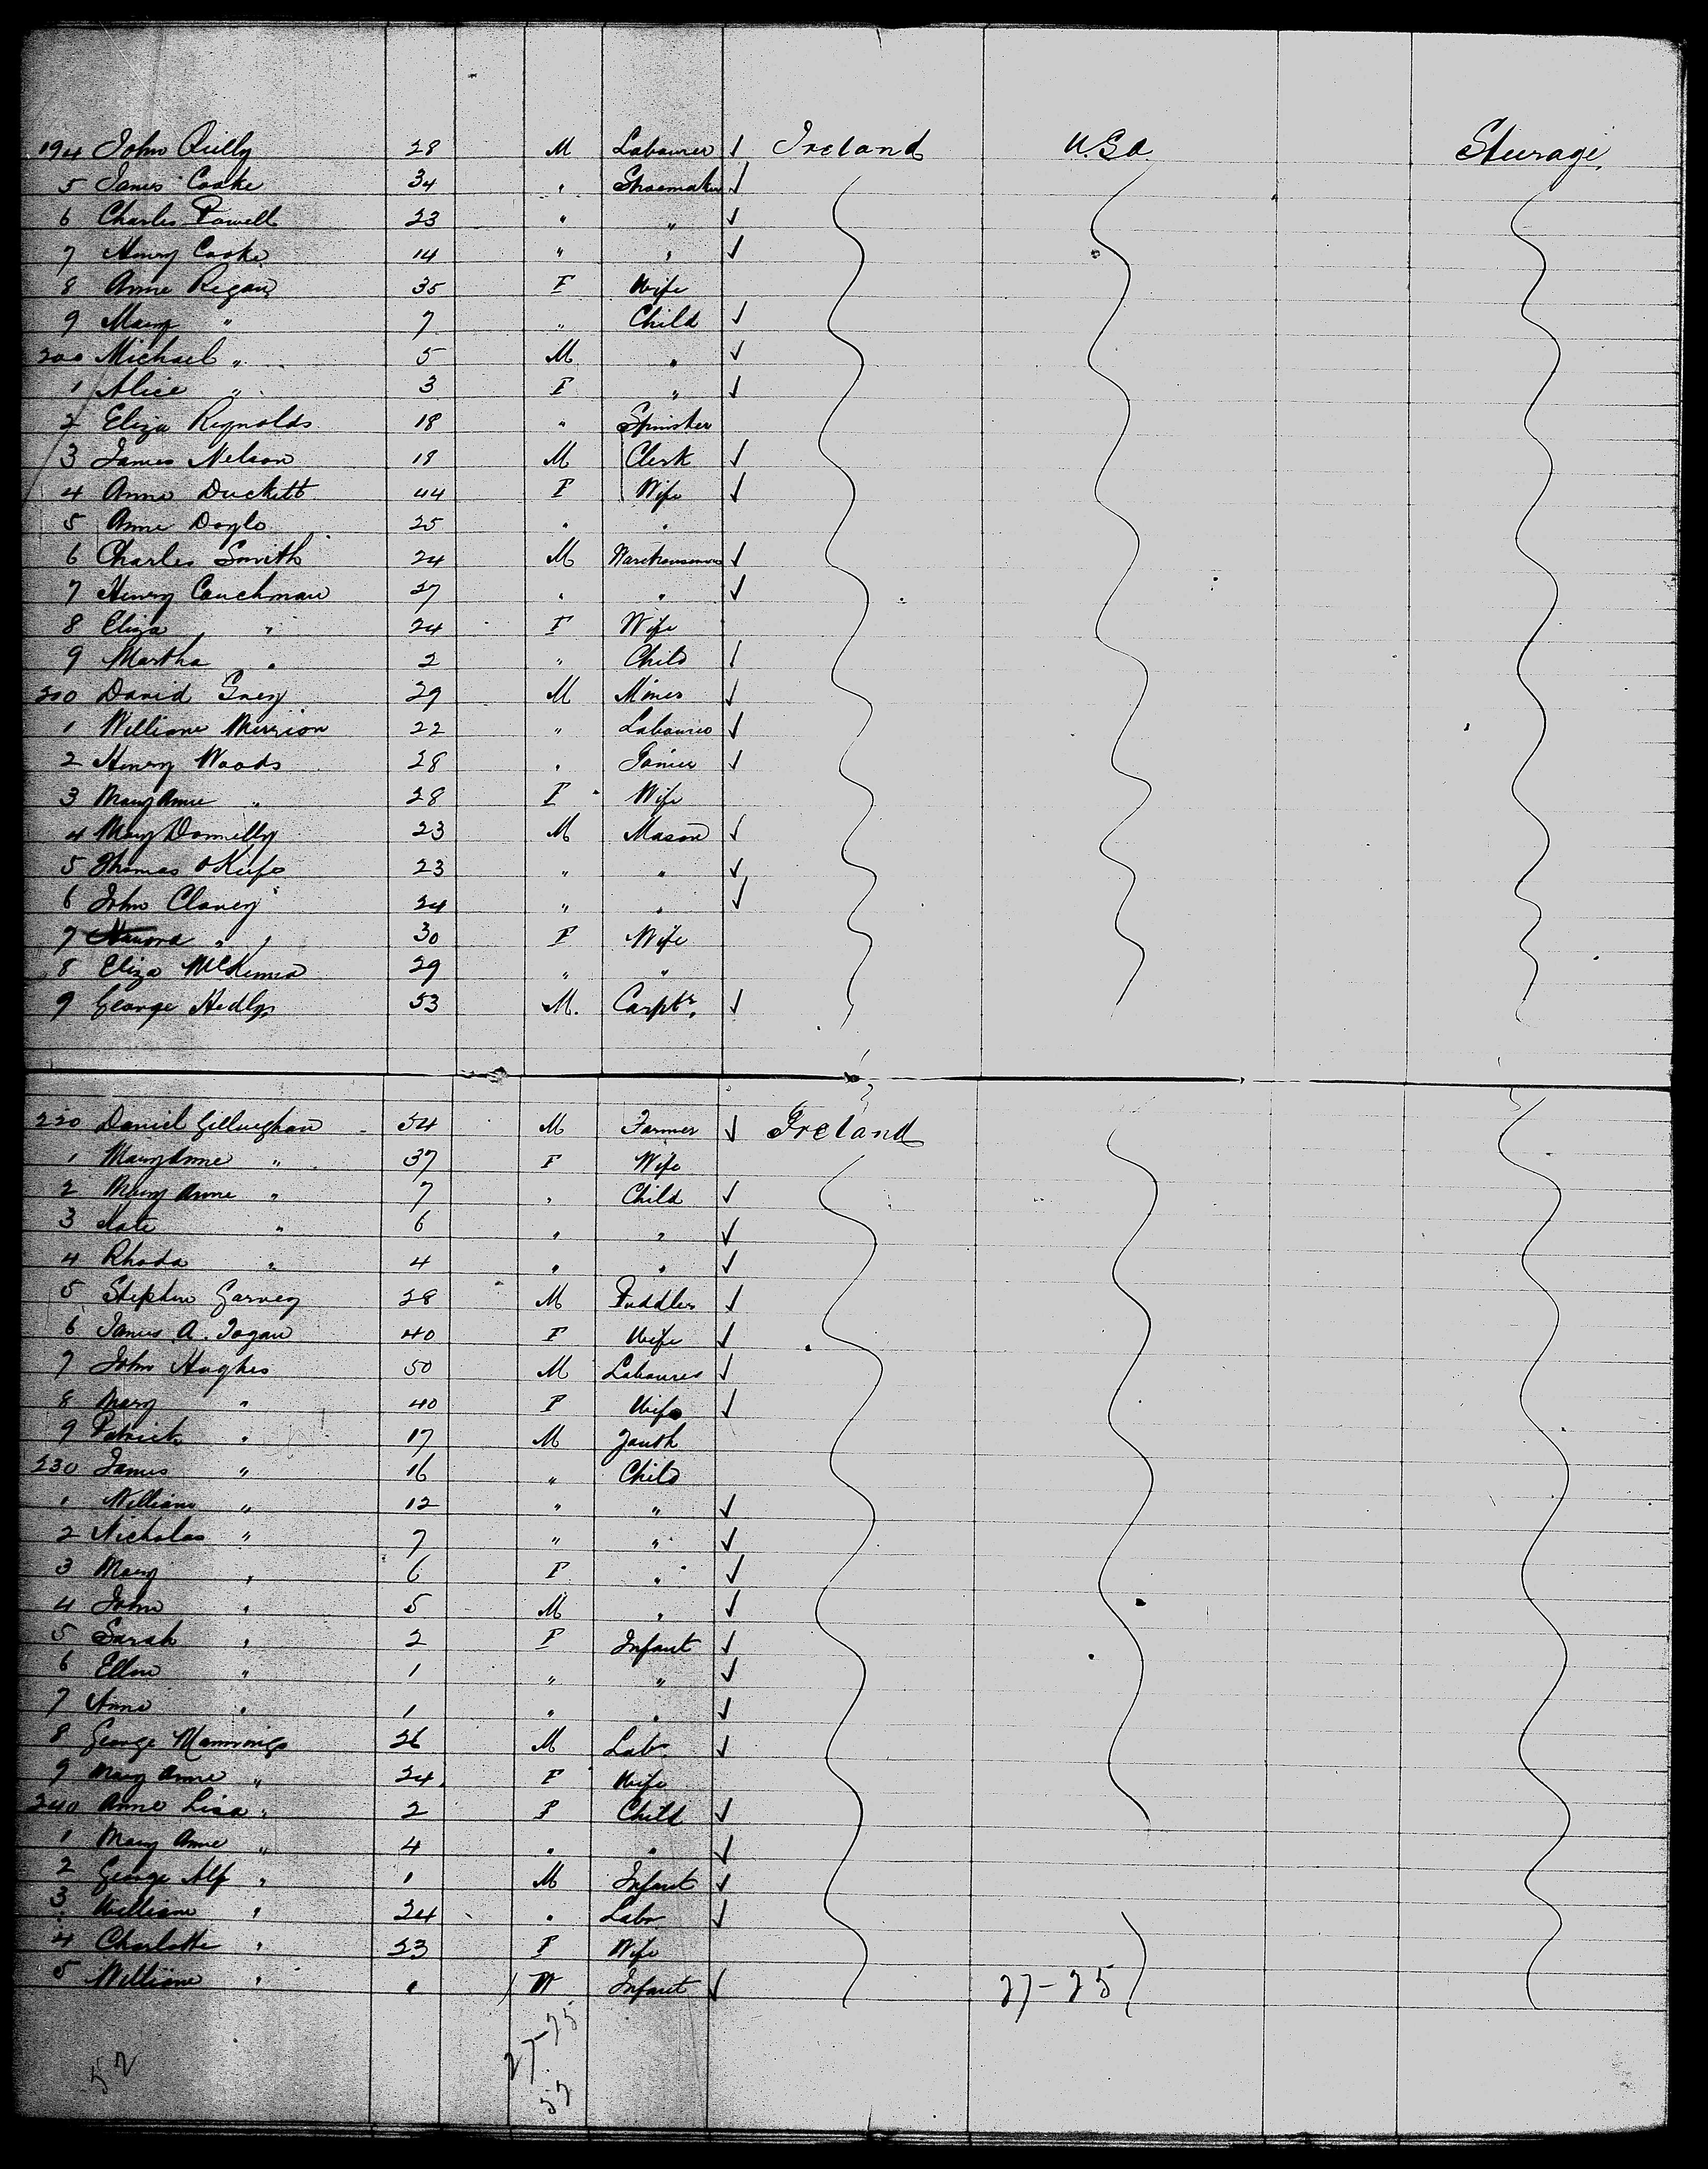 194 John Reilly 28 M Labourer ✓ Ireland U.S.A. Steerage
5 James Cooke 34 " Shoemaker ✓
6 Charles Powell 23 " " ✓
7 Henry Cooke 14 " " ✓
8 Anne Regan 35 F Wife
9 Mary " 7 " Child ✓
200 Michael " 5 M " ✓
1 Alice " 3 F " ✓
2 Eliza Reynolds 18 " Spinster
3 James Nelson 18 M Clerk ✓
4 Anne Duckett 44 F Wife ✓
5 Anne Doyle 25 " "
6 Charles Smith 24 M Warehouseman ✓
7 Henry Couchman 27 " " ✓
8 Eliza " 24 F Wife
9 Martha " 2 " Child ✓
210 David Grey 29 M Miner ✓
1 William 22 " Labourer ✓
2 Henry Woods 28 " Joiner ✓
3 Mary Anne " 28 F Wife
4 May Donnelly 23 M Mason ✓
5 Thomas O'Keefe 23 " " ✓
6 John Clancy 24 " " ✓
7 " 30 F Wife
8 Eliza McKenna 29 " "
9 George Hedly 53 M. Carptr. ✓
220 Daniel Gillingham 54 M Farmer ✓ Ireland
1 Mary Anne " 37 F Wife
2 Mary Anne " 7 " Child ✓
3 Kate " 6 " " ✓
4 Rhoda " 4 " " ✓
5 Stephen Garvey 28 M Puddler ✓
6 James A. 40 F Wife ✓
7 John Hughes 50 M Labourer ✓
8 Mary " 40 F Wife ✓
9 Patrick " 17 M Youth
230 James " 16 " Child
1 William " 12 " " ✓
2 Nicholas " 7 " " ✓
3 Mary " 6 F " ✓
4 John " 5 M " ✓
5 Sarah " 2 F Infant ✓
6 Ellen " 1 " " ✓
7 Anne " 1 " " ✓
8 George Mannings 26 M Labr. ✓
9 Mary Anne " 24 F Wife
240 Anne Lisa " 2 F Child ✓
1 Mary Anne " 4 " " ✓
2 George Alf " 1 M Infant ✓
3 William " 24 " Labr. ✓
4 Charlotte " 23 F Wife
5 William " " M Infant ✓ 27-25
27-25
52